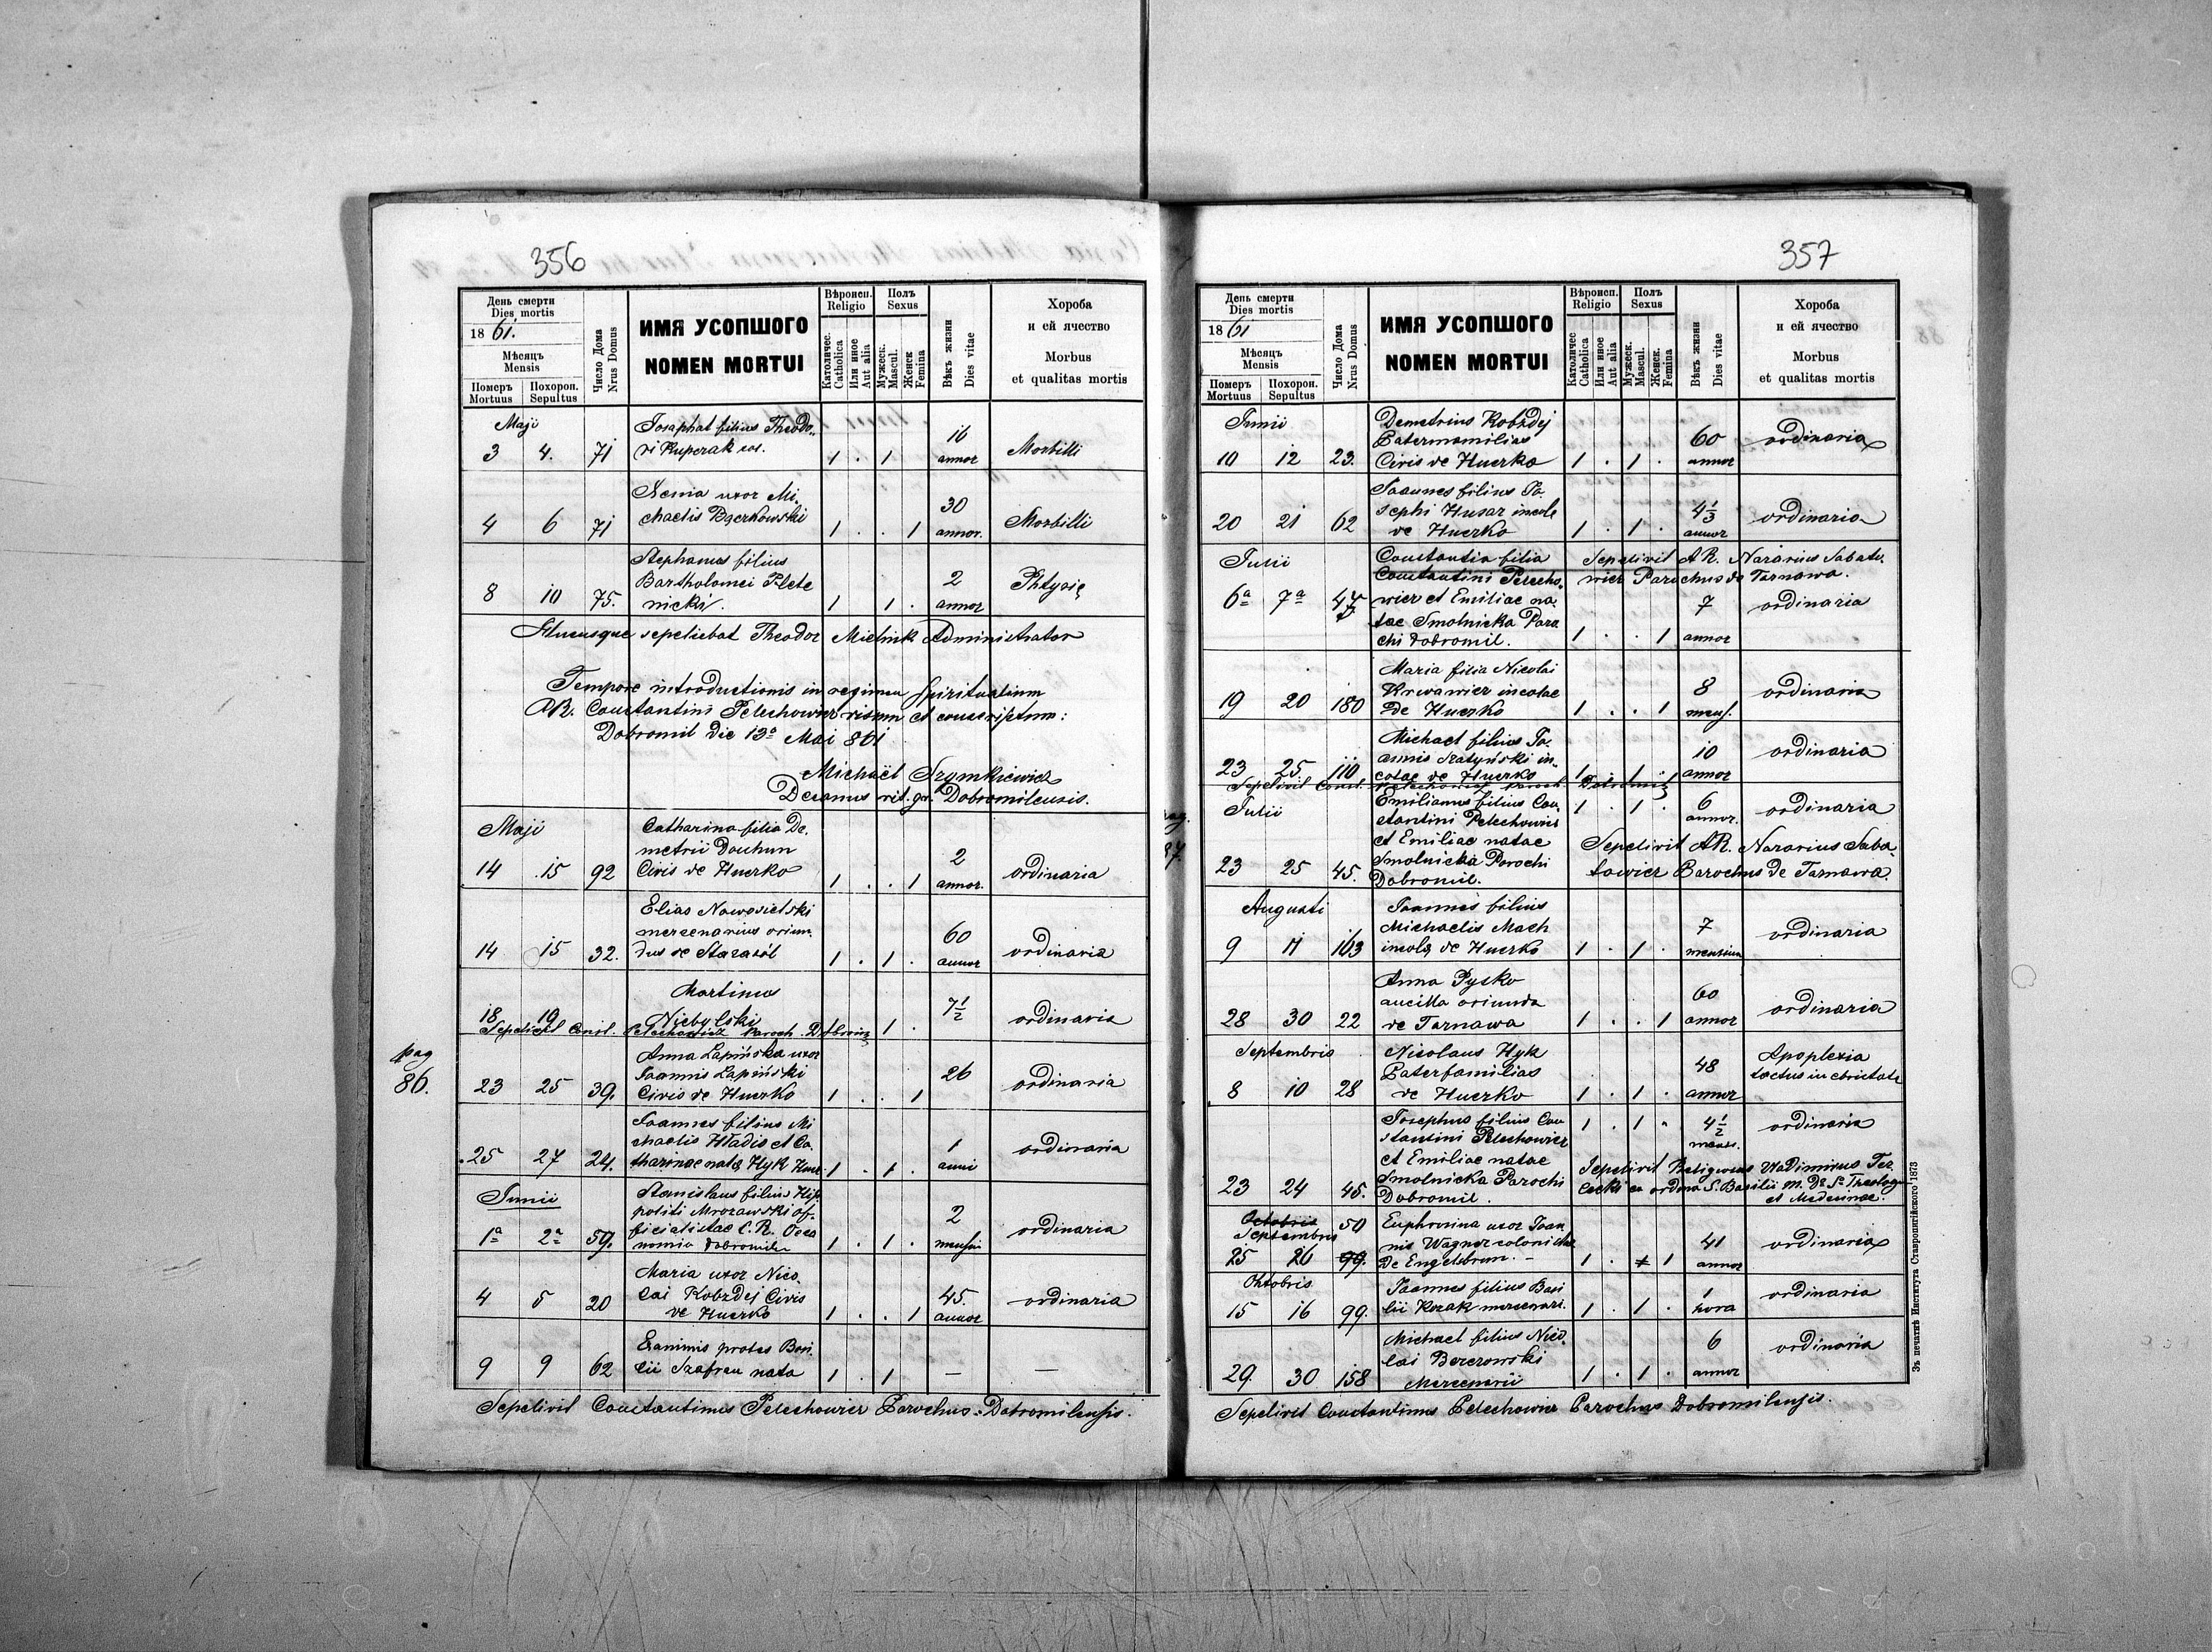 356
День смерти
Dies mortis
18 61.
Мѣсяцъ
Mensis
Померъ Похорон.
Mortuus Sepultus
Число Дома
Nrus Domus
ИМЯ УСОПШОГО
NOMEN MORTUI
Вѣроисп.
Religio
Католичес.
Catholica
Или иное
Aut alia
Полъ
Sexus
Мужеск.
Mascul.
Женск
Femina
Вѣкъ жизни
Dies vitae
Хороба
и ей ячество
Morbus
et qualitas mortis
Maji
Josaphat filius Theodo-
3 4. 71 ri Kuperak 1 . 1 16 annor Morbilli
Xenia uxor Mi-
4 6 71 chaelis 1 . . 1 30 annor. Morbilli
Stephanus filius
Bartholomei Plete
8 10 75. nicki. 1 1 . 2 annor
Hucusque sepeliebat Theodor Mielnik Administrator
Tempore introductionis in regimen Spirituatium
AR. Constantini Pelechowicz visum et conscriptum:
Dobromil die 13a Mai 861
Michaël Szymkiewicz
Decanus rit. gr. Dobromilensis.
Maji
Catharina filia De-
metrii Douhun
14 15 92 Civis de Huczko 1 . . 1 2 annor. ordinaria
Elias Nowosielski
mercenarius oriun-
14 15 32. dus de Starasól 1 . 1 . 60 annor ordinaria
Martinus
18 19 Niebylski 1 . 7 1/2 ordinaria
Sepelivit Const. Pelechowicz Paroch. Dobromil
pag
86.
Anna Łapińska uxor
Joannis Łapiński
23 25 39. Civis de Huczko 1 . . 1 26 ordinaria
Joannes filius Mi
chaelis Hładio et Ca-
25 27 24. tharinae nata Hyk 1 . 1 . 1 anni ordinaria
Junii
Stanislaus filius Hip-
politi Mrozawski of-
ficialistae C. R. Oeco
1a 2a 59. nomia Dobromil 1 . 1 . 2 ordinaria
Maria uxor Nico-
lai Kobzdej Civis
4 5 20 de Huczko 1 . . 1 45. annor ordinaria
Exanimis protes Basi-
9 9 62 lii Szafran nata 1 . 1 — —
Sepelivit Constantinus Pelechowicz Parochus Dobromilensis.
357
День смерти
Dies mortis
18 61
Мѣсяцъ
Mensis
Померъ Похорон.
Mortuus Sepultus
Число Дома
Nrus Domus
ИМЯ УСОПШОГО
NOMEN MORTUI
Вѣроисп.
Religio
Католичес
Catholica
Или иное
Aut alia
Полъ
Sexus
Мужеск.
Mascul.
Женск.
Femina
Вѣкъ жизни
Dies vitae
Хороба
и ей ячество
Morbus
et qualitas mortis
Junii
Demetrius Kobzdej
Patermamilias
10 12 23. Civis de Huczko 1 . 1 . 60 annor ordinaria
Joannes filius Jo-
sephi Husar incole
20 21 62 de Huczko 1 . 1 . 4 1/3 annor ordinaria
Julii
Constantia filia Sepelivit AR. Nazarius Sabato-
Constantini Pelecho- wicz Parochus de Tarnawa.
6a 7a 47 wicz et Emiliae na- 7 ordinaria
tae Smolnicka Paro
chi Dobromil. 1 . . 1 annor
Maria filia Nicolai
Krwawicz incolae
19 20 180 de Huczko 1 . . 1 8 mens. ordinaria
Michael filius Jo-
annis Szatyński in-
23 25 110 colae de Huczko 1 . 1 . 10 annor ordinaria
Sepelivit Const. Pelechowicz Paroch Dobromil
Julii
Emilianus filius Con- 1 . 1 . 6 annor. ordinaria
stantini Pelechowicz
et Emiliae natae Sepelivit AR. Nazarius Saba-
23 25 45. Smolnicka Parochi towicz Parochus de Tarnawa.
Dobromil.
87.
Augusti
Joannes filius
Michaelis Mach
9 11 163 incola de Huczko 1 . 1 . 7 mensium ordinaria
Anna Pysko
ancilla oriunda
28 30 22 de Tarnawa 1 . . 1 60 annor ordinaria
Septembris
Nicolaus Hyk
Paterfamilias
8 10 28 de Huczko 1 . 1 . 48 annor Apoplexia tactus in ebrietate
Josephus filius Con 1 . 1 . 4 1/2 mens. ordinaria
stantini Pelechowicz
et Emiliae natae Sepelivit Religiosus Wladimirus Ter-
23 24 45. Smolnicka Parochi lecki ex ordine S. Basilii M. Dr Ss Theologiae
Dobromil. et Medicinae.
Octobris
Septembris
50 Euphrosina uxor Joan-
nis Wagner colonistae
25 26 99. de Engelsbrun. — 1 . 1 1 41 annor ordinaria
Oktobris
Joannes filius Basi
15 16 99. lii Kozak mercenari. 1 . 1 . 1 hora ordinaria
Michael filius Nico-
lai Berezowski
29. 30 158 Mercenarii 1 . 1 . 6 annor ordinaria
Sepelivit Constantinus Pelechowicz Parochus Dobromilensis.
Зъ печатнѣ Института Ставропигійского 1873